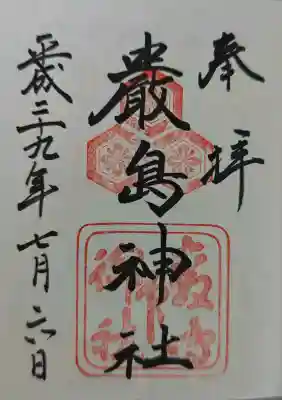 奉拝
嚴島神社
平成二十九年七月六日
嚴島神社